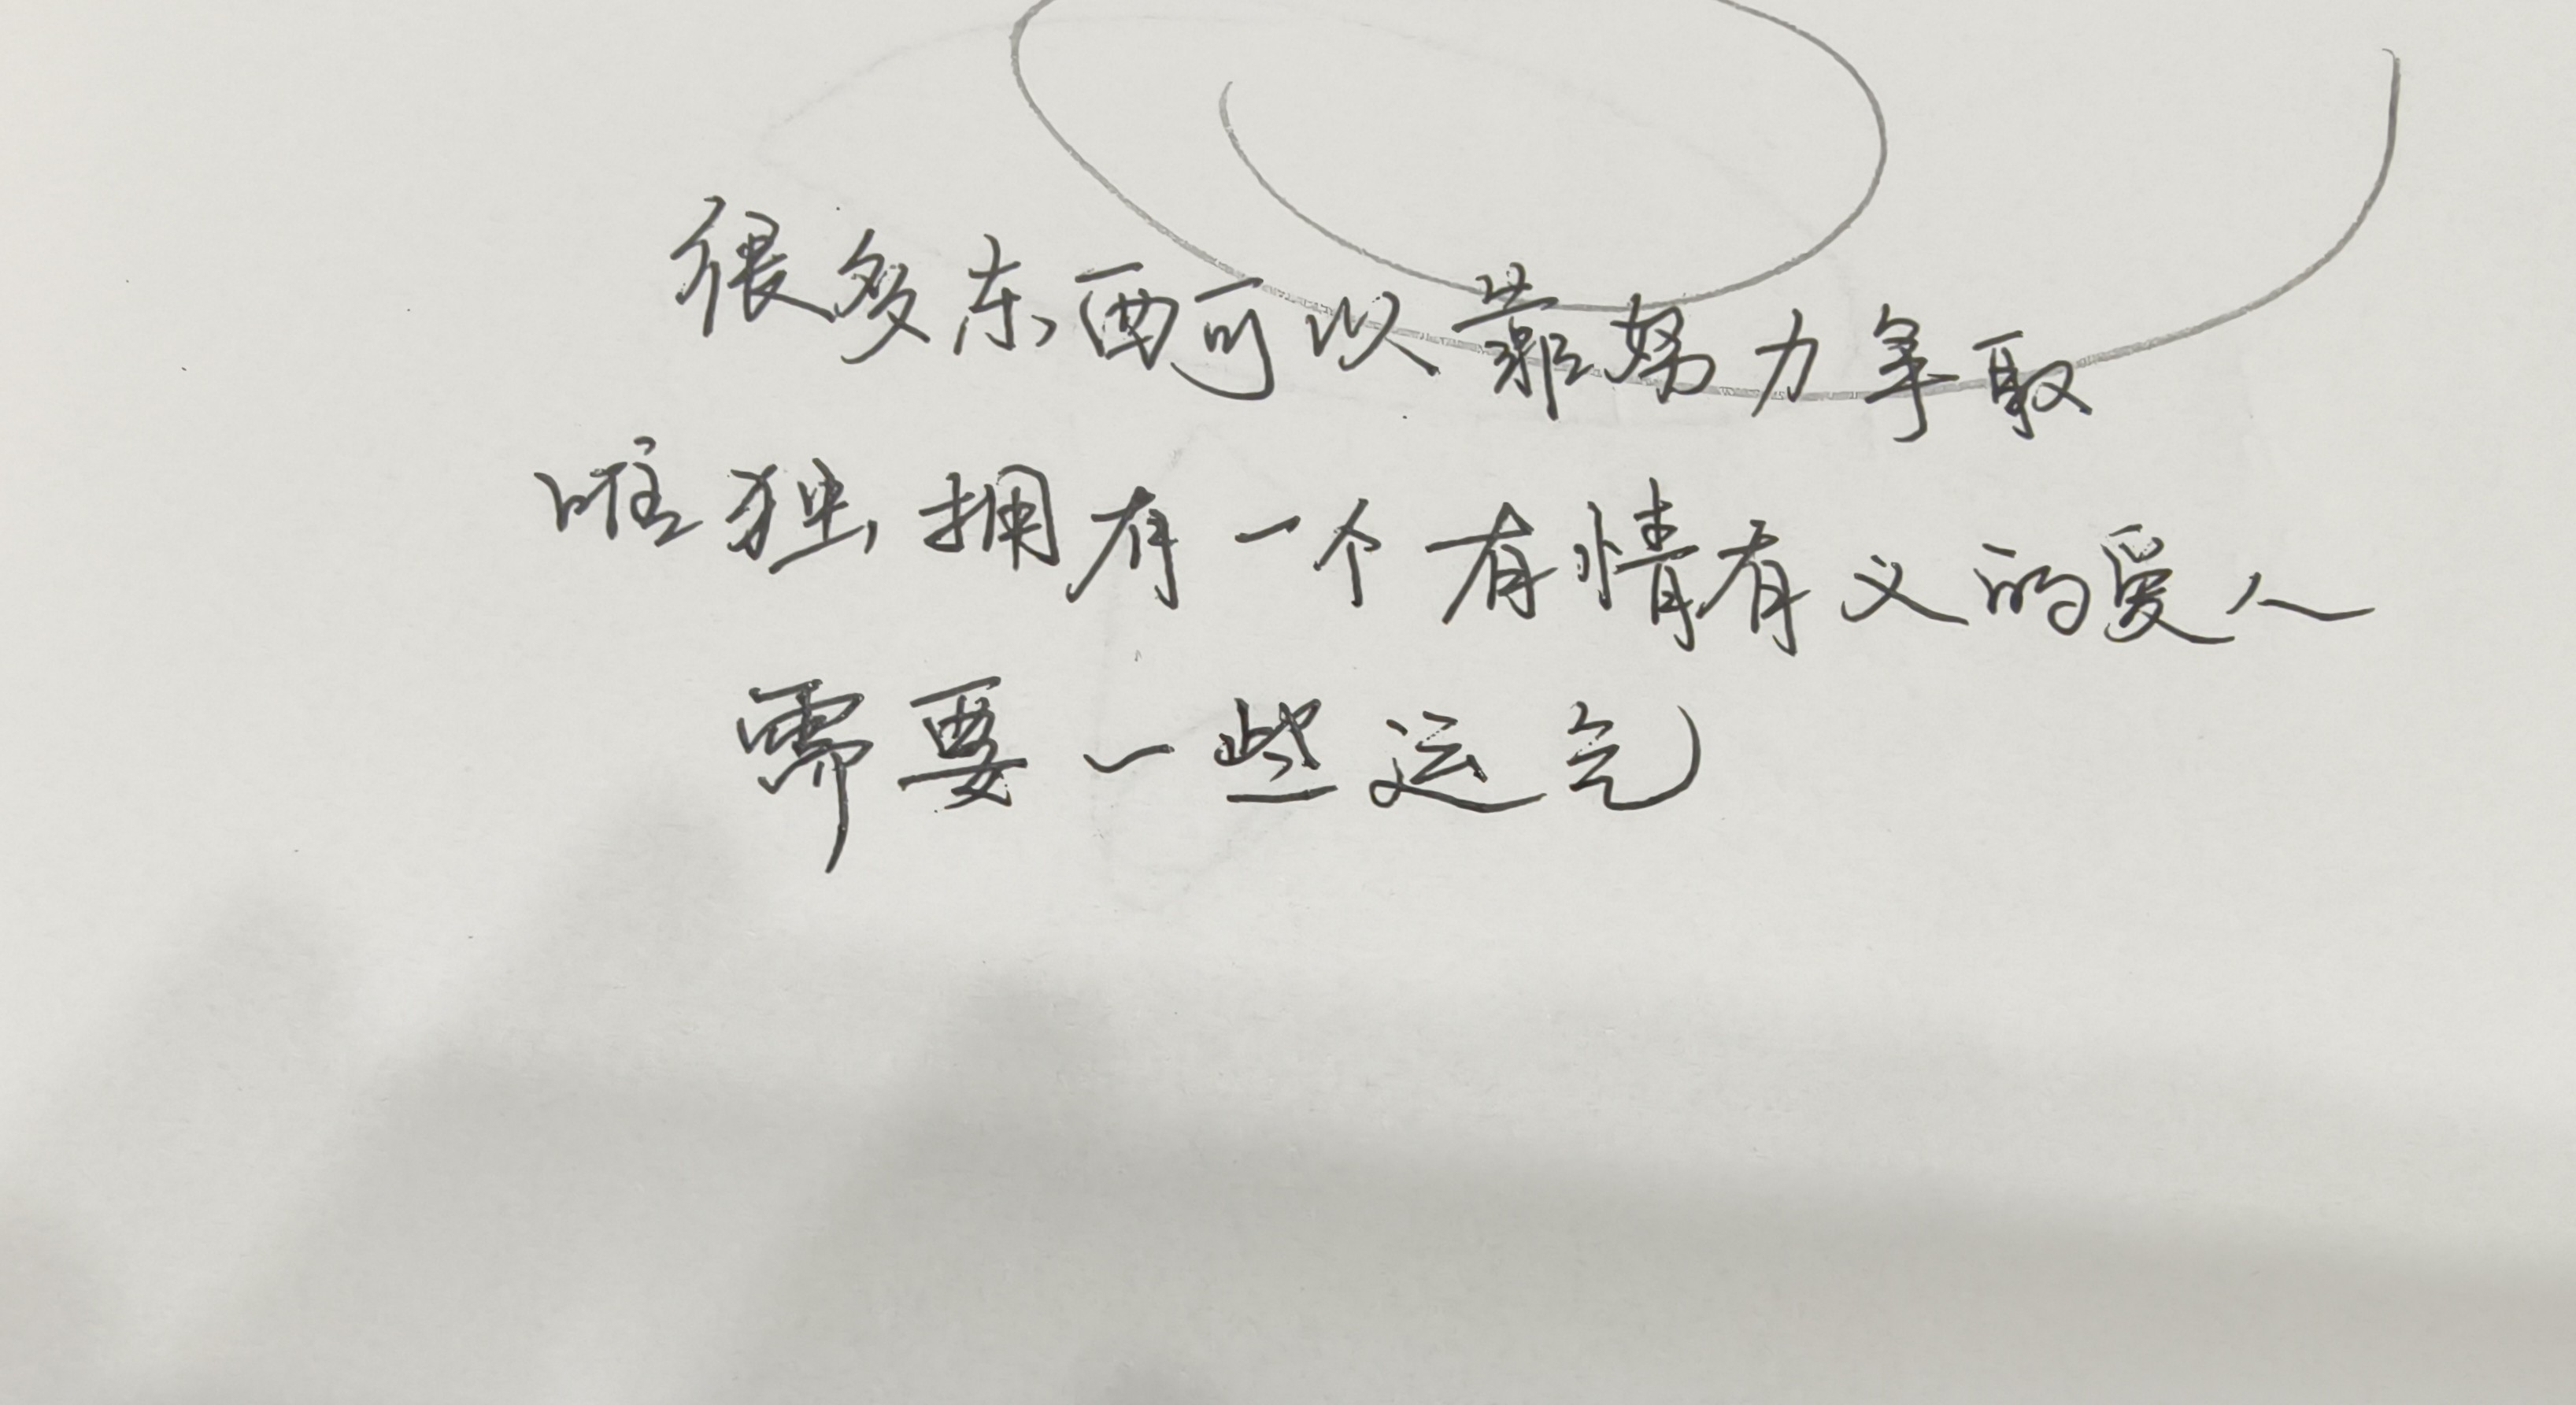 很多东西可以靠努力争取
唯独拥有一个有情有义的爱人
需要一些运气